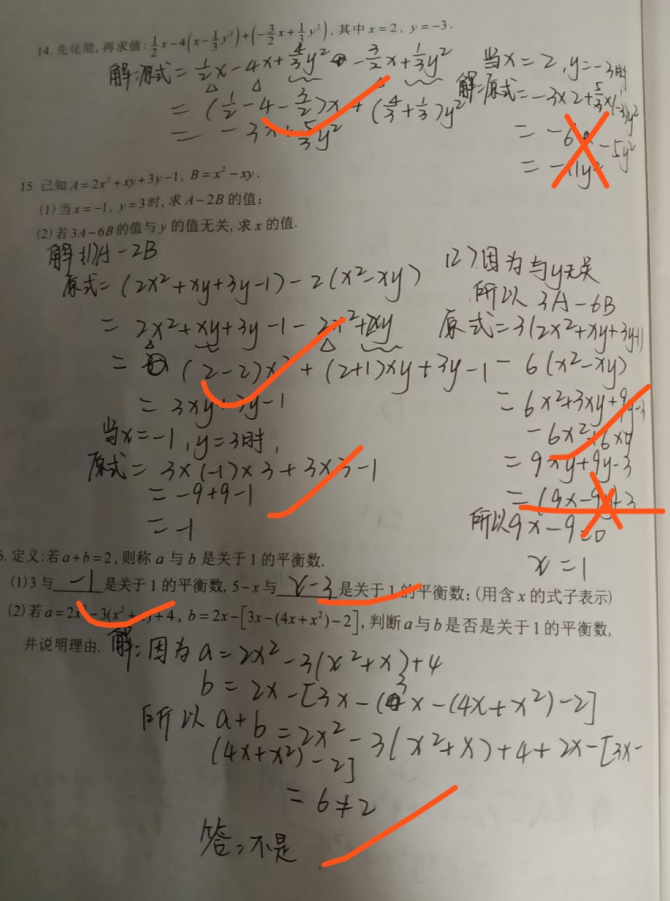 14. 先化简,再求值: 1/2x-4(x-1/3y²)+(-3/2x+1/3y²),其中x=2, y=-3.
解:原式=1/2x-4x+4/3y² -3/2x+1/3y²
=(1/2-4-3/2)x+(4/3+1/3)y²
=-3x+5/3y²
当x=2,y=-3时
解:原式=-3×2+5/3×(-3)y²
=-6 -5y²
=-11y²
15. 已知A=2x²+xy+3y-1, B=x²-xy.
(1)当x=-1, y=3时,求A-2B的值;
(2)若3A-6B的值与y的值无关,求x的值.
解:(1)A-2B
原式=(2x²+xy+3y-1)-2(x²-xy)
=2x²+xy+3y-1-2x²+2xy
=(2-2)x²+(2+1)xy+3y-1
=3xy+3y-1
当x=-1,y=3时,
原式=3×(-1)×3+3×3-1
=-9+9-1
=-1
(2)因为与y无关
所以3A-6B
原式=3(2x²+xy+3y-1)
-6(x²-xy)
=6x²+3xy+9y-3
-6x²+6xy
=9xy+9y-3
=(9x-9)+3
所以9x-9=0
x=1
6. 定义:若a+b=2,则称a与b是关于1的平衡数.
(1)3与 -1 是关于1的平衡数, 5-x与 x-3 是关于1的平衡数;(用含x的式子表示)
(2)若a=2x²-3(x²+x)+4, b=2x-[3x-(4x+x²)-2],判断a与b是否是关于1的平衡数,
并说明理由.
解:因为a=2x²-3(x²+x)+4
b=2x-[3x-(3x-(4x+x²)-2]
所以a+b=2x²-3(x²+x)+4+2x-[3x-
(4x+x²)-2]
=6≠2
答:不是